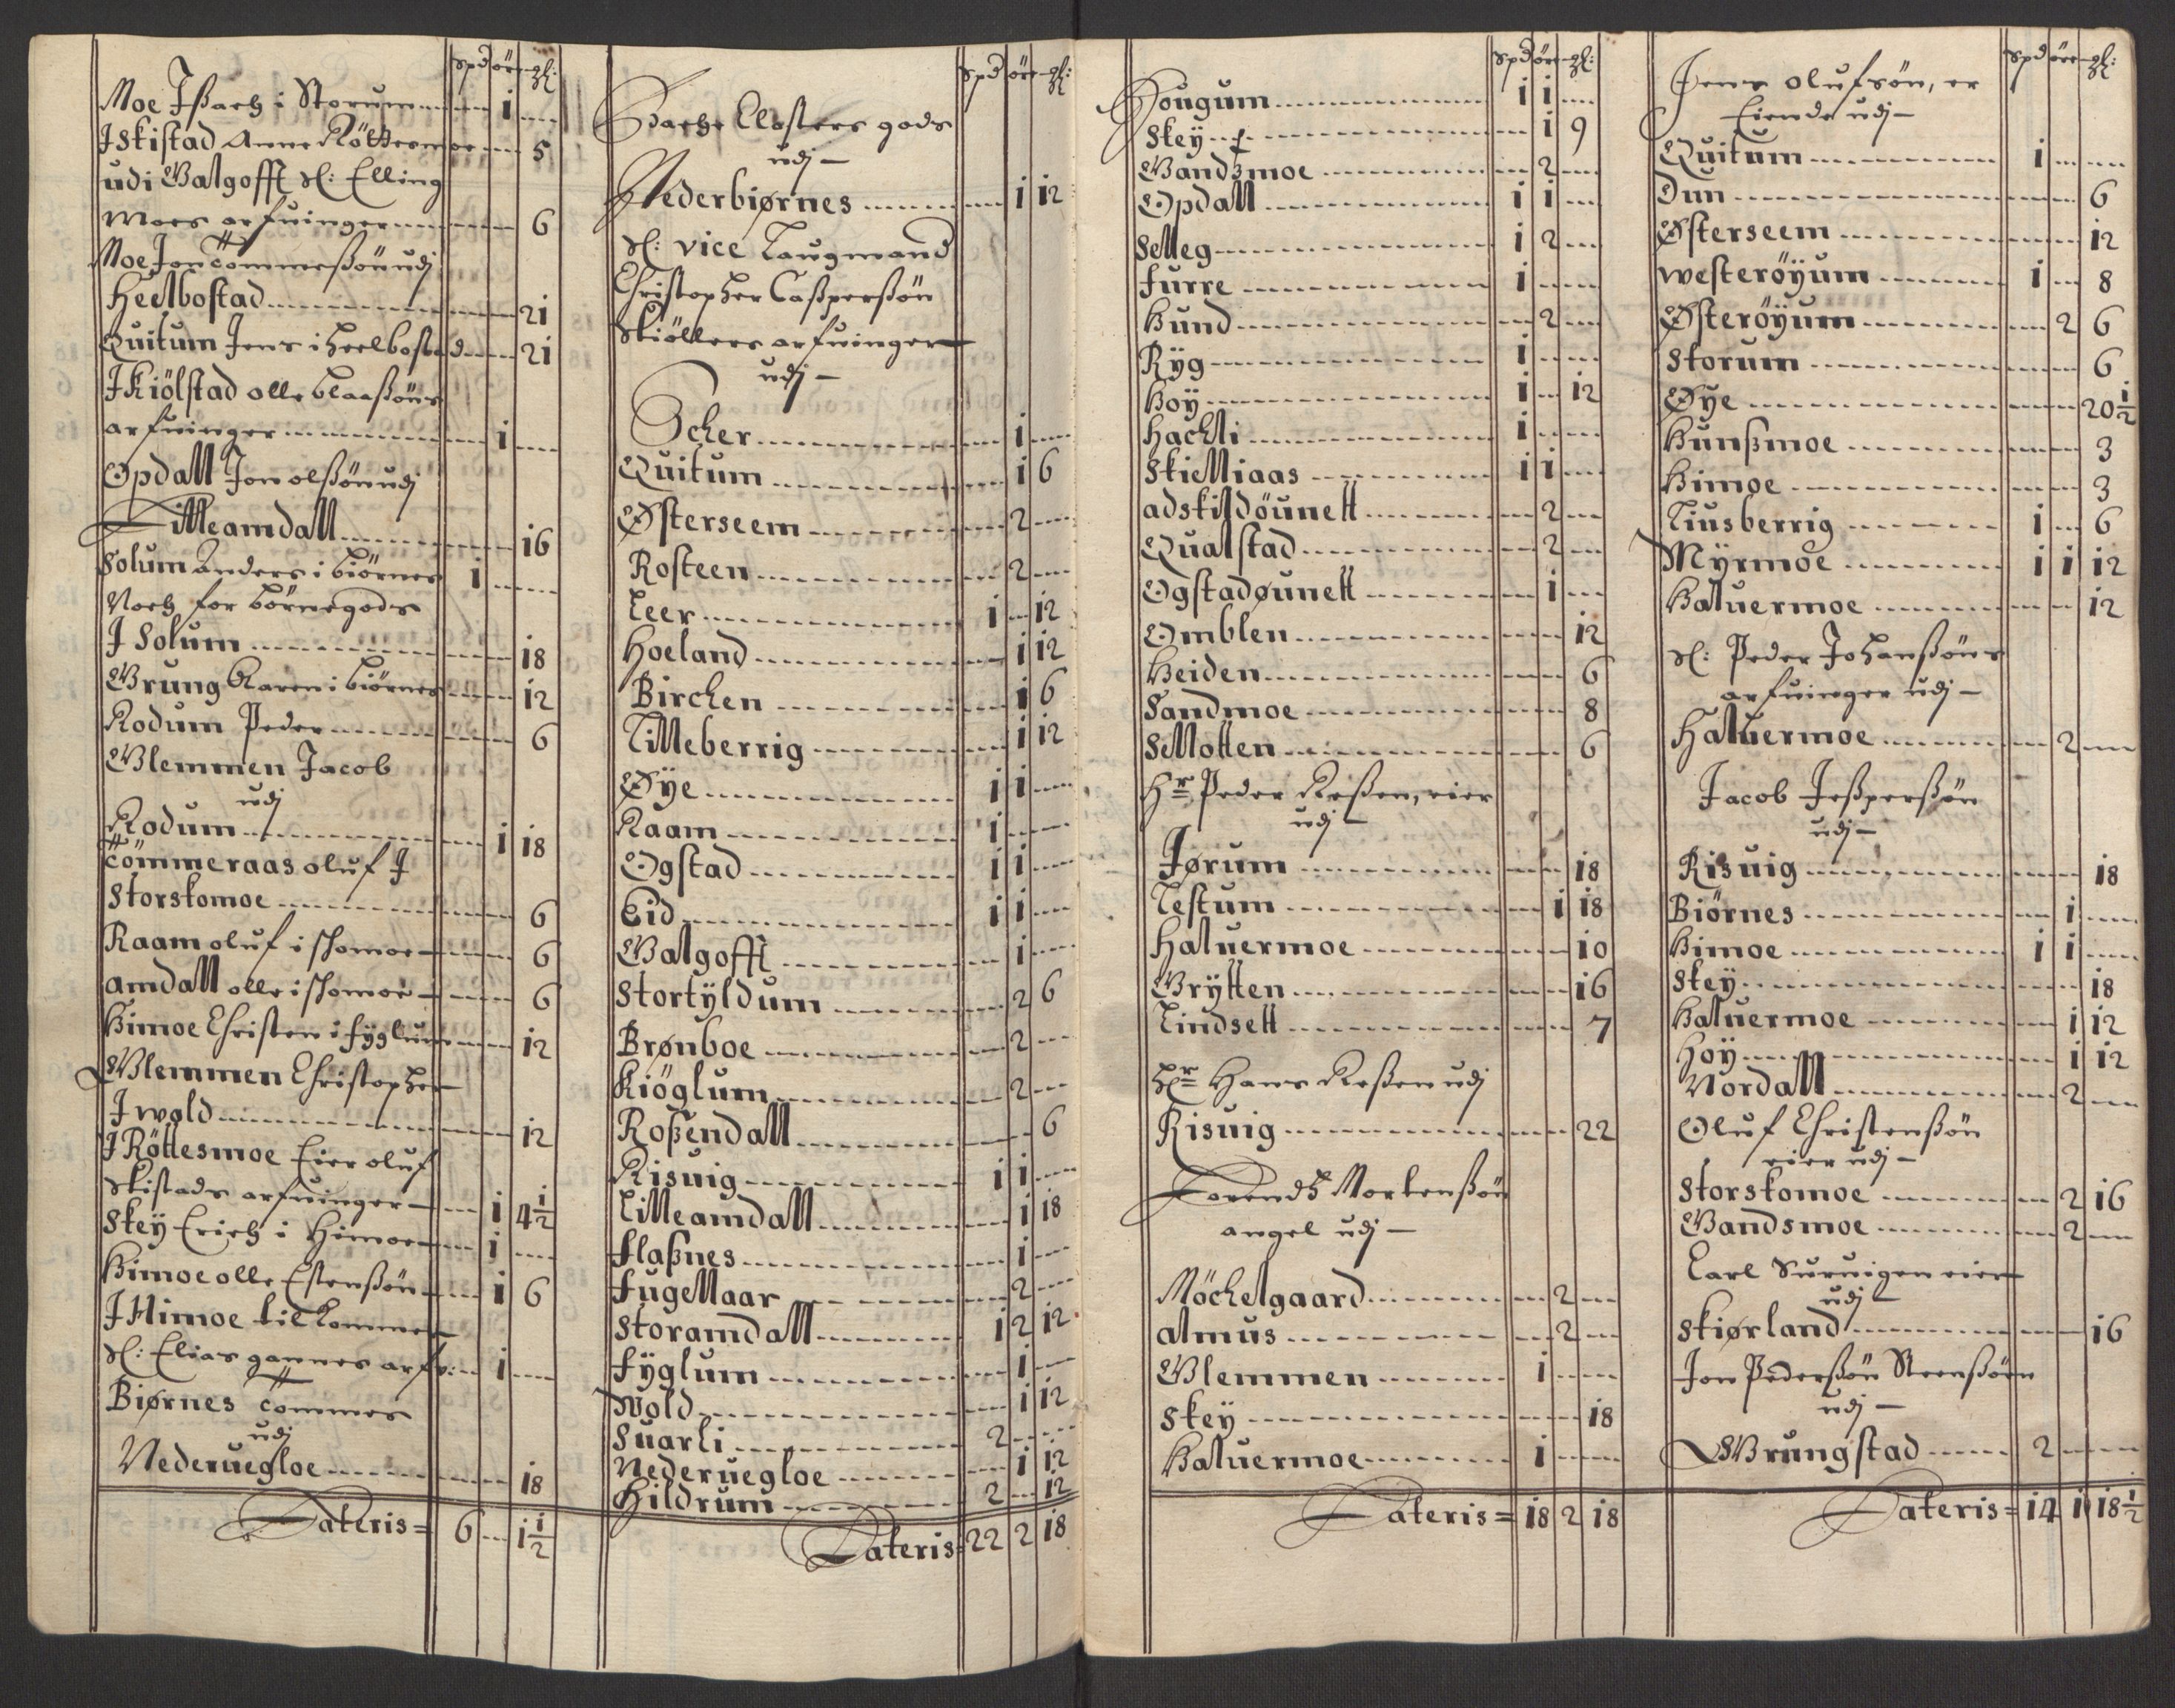 Spd öre gl:
Moe Ißach i Storum ... 1 ...
I Skistad Anne Röttesmoe ... 5
udi Valgofft Sl: Elling
Moes arfuinger ... 6
Moe Jon Tommesßön udj
Heelbostad ... 21
Quitum Jens i heelbostad ... 21
I Kiölstad olle blaaßöns
arfuinger ... 1 ...
Opdall Jon olßön udj
Lilleamdall ... 16
Solum Anders i biörnes 1 ...
Noch for börnegods
I Solum ... 18
Grung Karen i biörnes ... 12
Rodum Peder ... 6
Glemmen Jacob
udj
Rodum ... 1 18
Tömmeraas oluf I
Storskomoe ... 6
Raam oluf i schomoe ... 6
amdall olle i schomoe ... 6
Himoe Christen i fyglum ... 12
Glemmen Christopher
I wold ... 12
I Röttesmoe Eier oluf
Skistads arfuinger ... 1 4 1/2
Skey Erich i Himoe ... 1 ...
Himoe olle Estensßön ... 1 6
I Himoe tilkommer
Sl: Elias gannes arfv: ... 1 ...
Biørnes Tommes
udj
Nederuegloe ... 18
Lateris = 6 ... 1 1/2
Spd öre gl:
Bache Closters gods
udj
Nederbiørnes ... 1 12
Sl: vice Laugmand
Christopher Caßperßön
Skiöllers arfuinger
udj
Scher ... 1 ...
Quitum ... 1 6
Østerseem ... 2 ...
Rosteen ... 2 ...
Leer ... 1 ... 12
Hoeland ... 1 12
Birchen ... 1 6
Lilleberrig ... 1 12
Øÿe ... 1 1 ...
Raam ... 1 ...
Ogstad ... 1 1 ...
Eid ... 1 1 ...
Valgofft ... 1 ...
Stortÿldum ... 2 6
Brønboe ... 2 ...
Kiöglum ... 2 ...
Roßendall ... 6
Risuig ... 1 1 ...
Lilleamdall ... 1 18
Flaßnes ... 1 ...
Fugellaar ... 2 ...
Storamdall ... 1 2 12
Fÿglum ... 1 ...
Wold ... 1 12
Suarli ... 2 ...
Nederuegloe ... 1 12
Hildrum ... 2 ... 12
Lateris = 22 2 18
Spd öre gl:
Hougum ... 1 1 ...
Skey ... 1 9
Vandsmoe ... 2 ...
Opdall ... 1 1 ...
Selleg ... 1 2 ...
Furre ... 1 ...
Hund ... 2 ...
Rÿg ... 1 ...
Hoÿ ... 1 ... 12
Hachli ... 1 ...
Skielliaas ... 1 1 ...
adskildöunett ... 2 ...
Qualstad ... 2 ...
Ogstadøunett ... 1 ...
Omblen ... 12
Heiden ... 6
Sandmoe ... 8
Sellotten ... 6
Hr Peder Reßen, eier
udj
Jørum ... 18
Testum ... 1 18
Haluermoe ... 10
Grÿtten ... 16
Lindsett ... 7
Hr Hans Reßen udj
Risuig ... 22
Lorends Mortensßön
angel udj
Möchelgaard ... 2 ...
almus ... 2 ...
Glemmen ... 1 ...
Skey ... 18
Haluermoe ... 1 ...
Lateris = 18 2 18
Spd öre gl:
Jens olufsön, er
Eiende udj
Quitum ... 1 ...
Dun ... 6
Østerseem ... 12
westeröÿum ... 1 ... 8
Østeröÿum ... 2 6
Storum ... 6
Øÿe ... 20 1/2
Hunßmoe ... 3
Himoe ... 3
Liusberrig ... 1 ... 6
Mÿrmoe ... 1 1 12
Haluermoe ... 12
Sl: Peder Johanßöns
arfuinger udj
Haluermoe ... 2 ...
Jacob Jeßperßön
udj
Risuig ... 18
Biörnes ... 1 ...
Himoe ... 1 1 ...
Skey ... 18
Haluermoe ... 1 12
Hoÿ ... 1 12
Nordall ... 2 ...
Oluf Christensßön
eier udj
Storskomoe ... 2 16
Vandsmoe ... 2 ...
Carl Suruigen eier
udj
Skiørland ... 16
Jon Pedersßön Steensßön
udj
Grungstad ... 2 ...
Lateris = 14 1 18 1/2